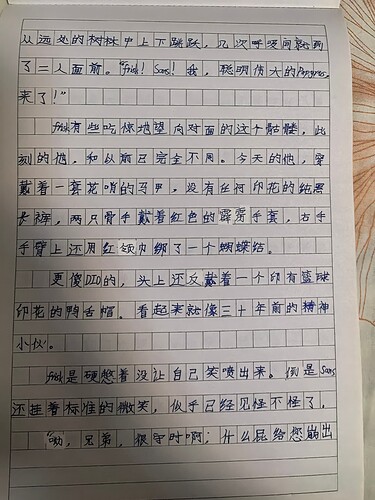 从远处的树林中上下跳跃，几次呼吸间就到
了二人面前。"frisk！Sans！我，聪明伟大的Papyrus，
来了！"
frisk有些吃惊地望向对面的这个骷髅，此
刻的他，和以前已完全不同。今天的他，穿
戴着一套花哨的马甲，没有任何印花的纯黑
长裤，两只骨手戴着红色的露指手套，右手
手臂上还用红领巾绑了一个蝴蝶结。
更傻DIO的，头上还反戴着一个印有篮球
印花的鸭舌帽。看起来就像三十年前的精神
小伙。
frisk是硬憋着没让自己笑喷出来。倒是Sans
还挂着标准的微笑，似乎已经见怪不怪了。
"呦，兄弟，很守时啊；什么屁给您崩出